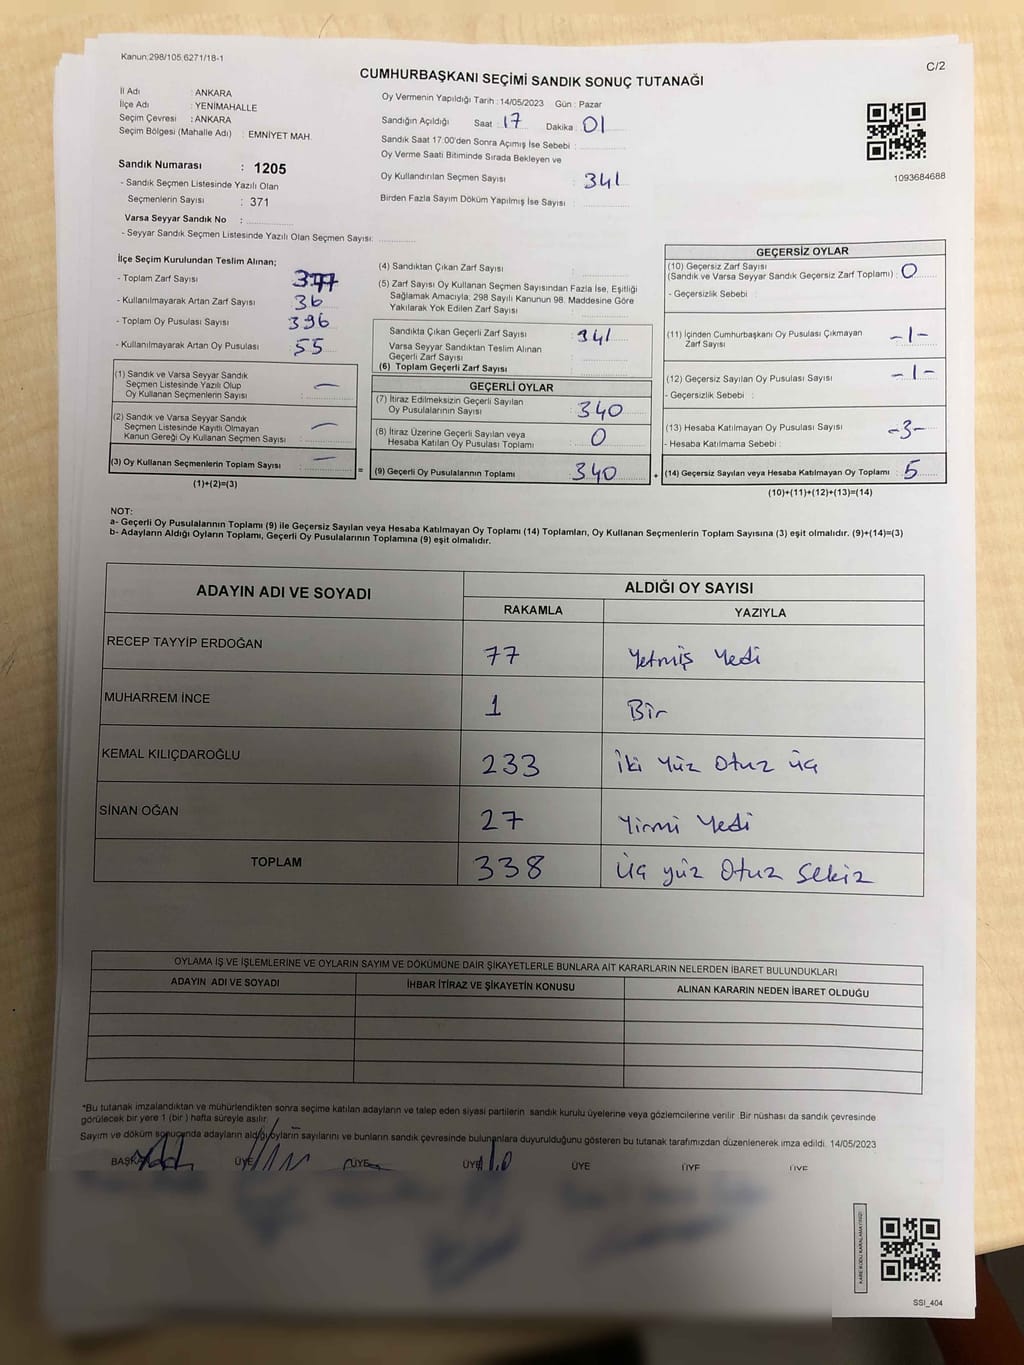 Kanun:298/105;6271/18-1
C/2
CUMHURBAŞKANI SEÇİMİ SANDIK SONUÇ TUTANAĞI
İl Adı : ANKARA
İlçe Adı : YENİMAHALLE
Seçim Çevresi : ANKARA
Seçim Bölgesi (Mahalle Adı) : EMNİYET MAH.
Sandık Numarası : 1205
- Sandık Seçmen Listesinde Yazılı Olan
Seçmenlerin Sayısı : 371
Varsa Seyyar Sandık No :
- Seyyar Sandık Seçmen Listesinde Yazılı Olan Seçmen Sayısı:
Oy Vermenin Yapıldığı Tarih : 14/05/2023 Gün : Pazar
Sandığın Açıldığı Saat : 17 Dakika : 01
Sandık Saat 17:00'den Sonra Açımış İse Sebebi :
Oy Verme Saati Bitiminde Sırada Bekleyen ve
Oy Kullandırılan Seçmen Sayısı : 341
Birden Fazla Sayım Döküm Yapılmış İse Sayısı :
1093684688
İlçe Seçim Kurulundan Teslim Alınan;
- Toplam Zarf Sayısı : 377
- Kullanılmayarak Artan Zarf Sayısı : 36
- Toplam Oy Pusulası Sayısı : 396
- Kullanılmayarak Artan Oy Pusulası : 55
(1) Sandık ve Varsa Seyyar Sandık
Seçmen Listesinde Yazılı Olup
Oy Kullanan Seçmenlerin Sayısı : —
(2) Sandık ve Varsa Seyyar Sandık
Seçmen Listesinde Kayıtlı Olmayan
Kanun Gereği Oy Kullanan Seçmen Sayısı : —
(3) Oy Kullanan Seçmenlerin Toplam Sayısı : —
(1)+(2)=(3)
(4) Sandıktan Çıkan Zarf Sayısı :
(5) Zarf Sayısı Oy Kullanan Seçmen Sayısından Fazla İse, Eşitliği
Sağlamak Amacıyla; 298 Sayılı Kanunun 98. Maddesine Göre
Yakılarak Yok Edilen Zarf Sayısı :
Sandıkta Çıkan Geçerli Zarf Sayısı : 341
Varsa Seyyar Sandıktan Teslim Alınan
Geçerli Zarf Sayısı :
(6) Toplam Geçerli Zarf Sayısı :
GEÇERLİ OYLAR
(7) İtiraz Edilmeksizin Geçerli Sayılan
Oy Pusulalarının Sayısı : 340
(8) İtiraz Üzerine Geçerli Sayılan veya
Hesaba Katılan Oy Pusulası Toplamı : 0
= (9) Geçerli Oy Pusulalarının Toplamı : 340 +
GEÇERSİZ OYLAR
(10) Geçersiz Zarf Sayısı
(Sandık ve Varsa Seyyar Sandık Geçersiz Zarf Toplamı) : 0
- Geçersizlik Sebebi :
(11) İçinden Cumhurbaşkanı Oy Pusulası Çıkmayan
Zarf Sayısı : -1-
(12) Geçersiz Sayılan Oy Pusulası Sayısı : -1-
- Geçersizlik Sebebi :
(13) Hesaba Katılmayan Oy Pusulası Sayısı : -3-
- Hesaba Katılmama Sebebi :
(14) Geçersiz Sayılan veya Hesaba Katılmayan Oy Toplamı : 5
(10)+(11)+(12)+(13)=(14)
NOT:
a- Geçerli Oy Pusulalarının Toplamı (9) ile Geçersiz Sayılan veya Hesaba Katılmayan Oy Toplamı (14) Toplamları, Oy Kullanan Seçmenlerin Toplam Sayısına (3) eşit olmalıdır. (9)+(14)=(3)
b- Adayların Aldığı Oyların Toplamı, Geçerli Oy Pusulalarının Toplamına (9) eşit olmalıdır.
ADAYIN ADI VE SOYADI ALDIĞI OY SAYISI
RAKAMLA YAZIYLA
RECEP TAYYİP ERDOĞAN 77 Yetmiş Yedi
MUHARREM İNCE 1 Bir
KEMAL KILIÇDAROĞLU 233 İki Yüz Otuz üç
SİNAN OĞAN 27 Yirmi Yedi
TOPLAM 338 Üç yüz Otuz Sekiz
OYLAMA İŞ VE İŞLEMLERİNE VE OYLARIN SAYIM VE DÖKÜMÜNE DAİR ŞİKAYETLERLE BUNLARA AİT KARARLARIN NELERDEN İBARET BULUNDUKLARI
ADAYIN ADI VE SOYADI İHBAR İTİRAZ VE ŞİKAYETİN KONUSU ALINAN KARARIN NEDEN İBARET OLDUĞU
*Bu tutanak imzalandıktan ve mühürlendikten sonra seçime katılan adayların ve talep eden siyasi partilerin sandık kurulu üyelerine veya gözlemcilerine verilir. Bir nüshası da sandık çevresinde
görülecek bir yere 1 (bir) hafta süreyle asılır.
Sayım ve döküm sonucunda adayların aldığı oyların sayılarını ve bunların sandık çevresinde bulunanlara duyurulduğunu gösteren bu tutanak tarafımızdan düzenlenerek imza edildi. 14/05/2023
BAŞKAN ÜYE ÜYE ÜYE ÜYE ÜYE ÜYE
KARE KODU KARALAMAYINIZ!
SSI_404